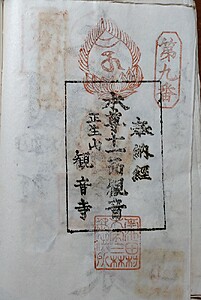 第九番
奉納経
本尊十一面観音
正生山
観音寺